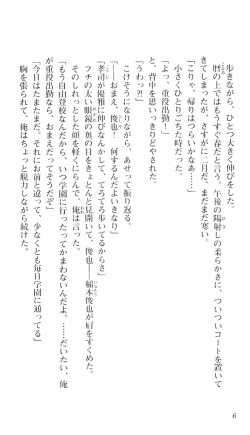 歩きながら、ひとつ大きく伸びをした。
暦の上ではもうすぐ春だと言う。午後の陽射しの柔らかさに、ついついコートを置いて
きてしまったが、さすがに二月だ。まだまだ寒い。
「こりゃ、帰りはつらいかなぁ……」
小さくひとりごちた時だった。
「よっ、重役出勤！」
と、背中を思いっきりどやされた。
「うわっ？!」
こけそうになりながら、あせって振り返る。
「――おまえ、俊也！　何するんだよいきなり」
「孝司が優雅に伸びなんかして、てろてろ歩いてるからさ」
フチの太い眼鏡の奥の目をきょとんと見開いて、俊也――稲本俊也が肩をすくめた。
そのしれっとした顔を軽くにらんで、俺は言った。
「もう自由登校なんだから、いつ学園に行ったってかまわないんだよ。……だいたい、俺
が重役出勤なら、おまえだってそうだぞ」
「今日はたまたまだ。それにお前と違って、少なくとも毎日学園に通ってる」
胸を張られて、俺はちょっと脱力しながら続けた。
6